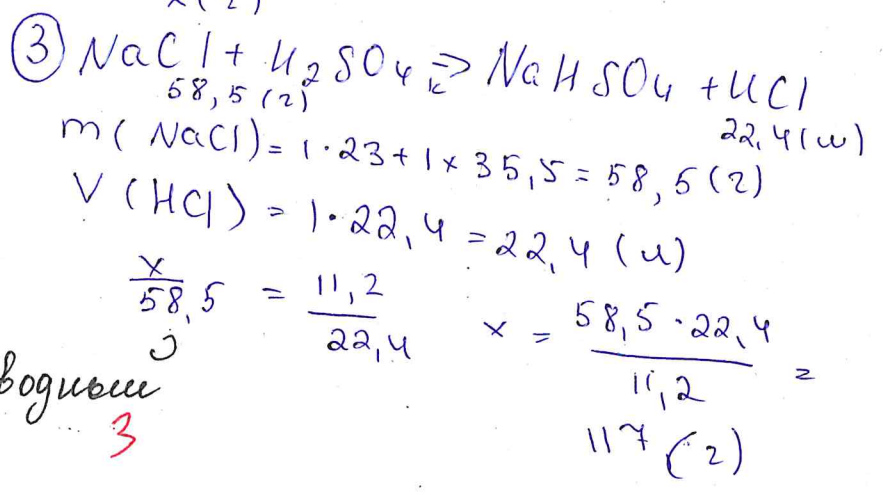 ③ NaCl + H₂SO₄ ⇒ NaHSO₄ + HCl
58,5 (г) 22,4 (л)
m(NaCl) = 1·23 + 1 × 35,5 = 58,5 (г)
V(HCl) = 1·22,4 = 22,4 (л)
x/58,5 = 11,2/22,4 x = 58,5·22,4/11,2 =
117 (г)
водный
3